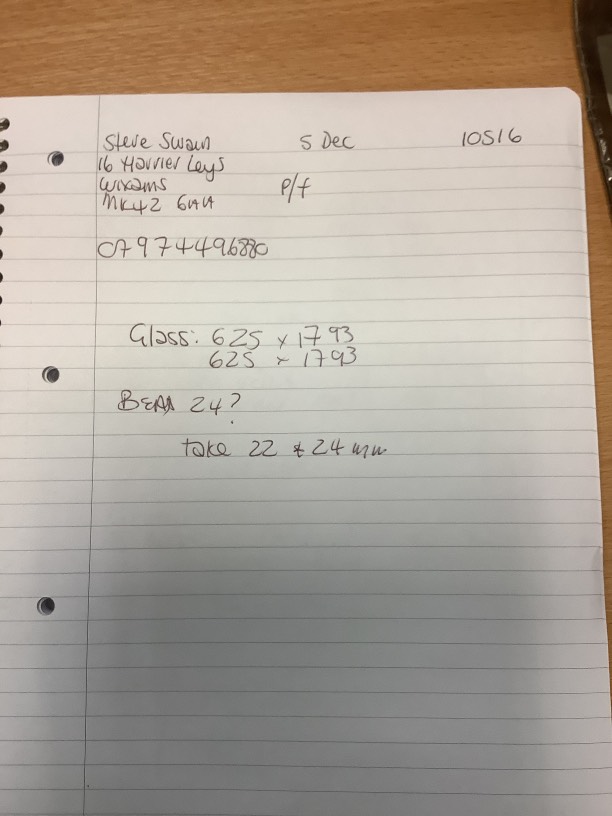 Steve Swain 5 Dec 10516
16 Harrier Leys
Wixams P/f
MK42 6AA
07974496880
Glass: 625 x 1793
625 x 1793
BEAD 24?
take 22 & 24 mm